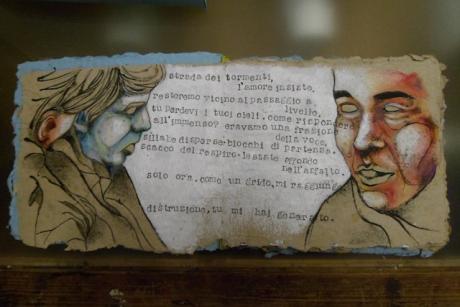 strada dei tormenti,
l'amore insiste.
resteremo vicino al passaggio a
livello.
tu perdevi i tuoi cieli. come rispondere
all'immenso? eravamo una frazione
della voce,
sillabe disparse. blocchi di partenza.
scacco del respiro. le state
nell'asfalto.
solo ora. come un grido, mi raggiung
distruzione, tu mi hai